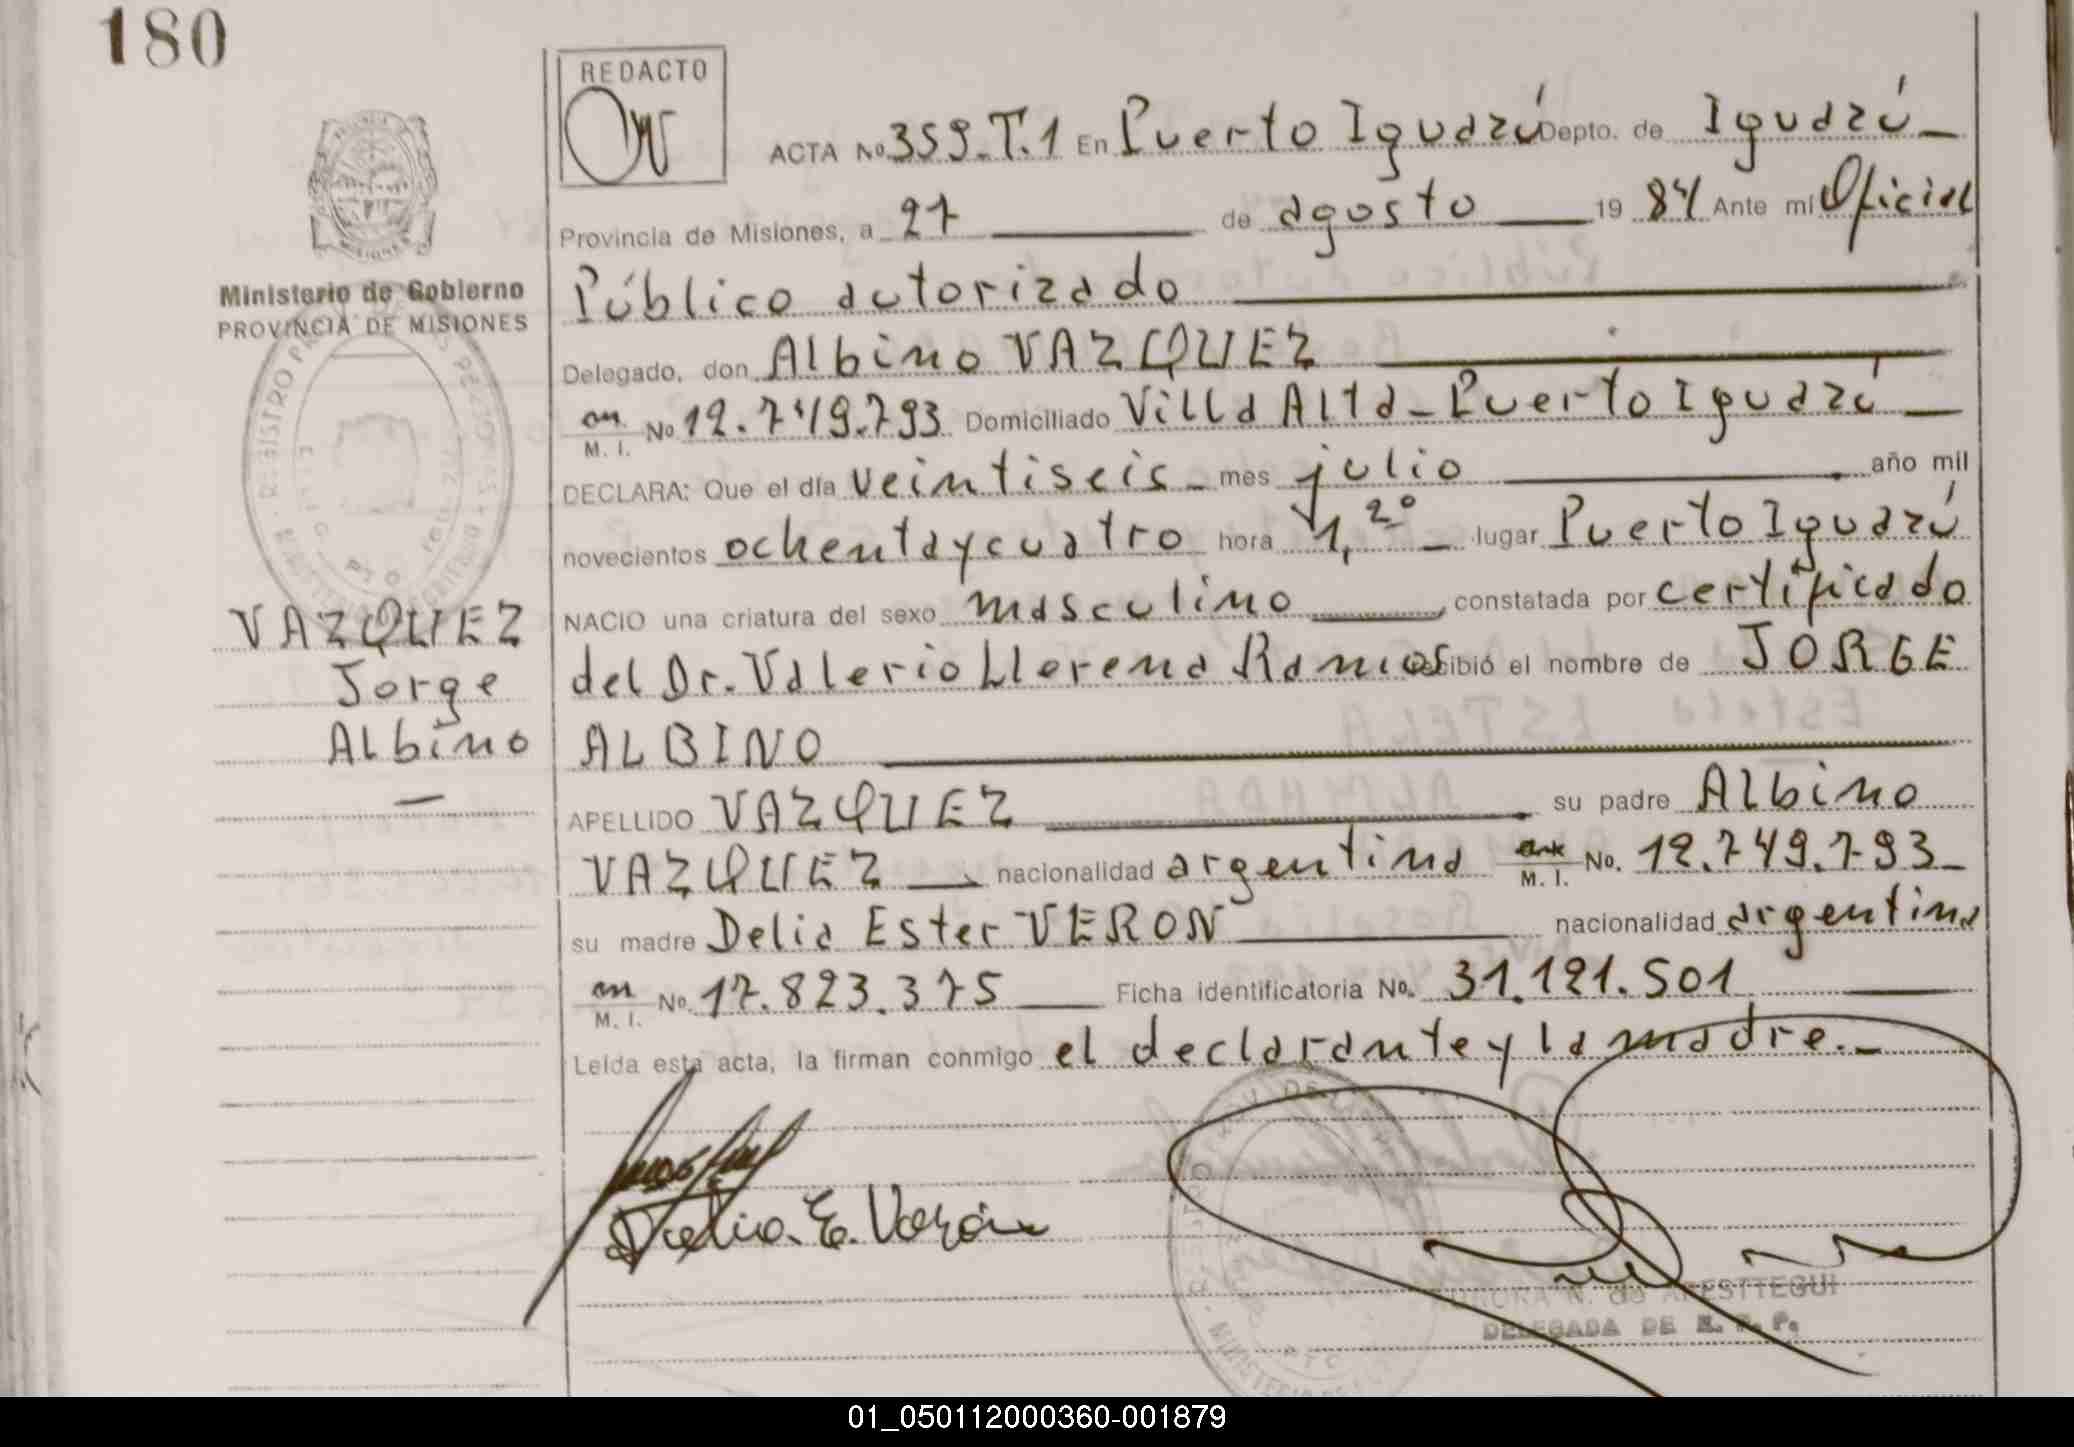 180
REDACTO
ACTA No 359.T.1 En Puerto Iguazú Depto. de Iguazú
Provincia de Misiones, a 27 de agosto 1984 Ante mi Oficial
Público autorizado
Ministerio de Gobierno
PROVINCIA DE MISIONES
Delegado, don Albino VAZQUEZ
M. I. No 12.749.793 Domiciliado Villa Alta - Puerto Iguazú
DECLARA: Que el día veintiseis mes julio año mil
novecientos ochentaycuatro hora 1,20 lugar Puerto Iguazú
NACIO una criatura del sexo masculino, constatada por certificado
del Dr. Valerio Llerena Ramos recibió el nombre de JORGE
ALBINO
VAZQUEZ
Jorge
Albino
APELLIDO VAZQUEZ su padre Albino
VAZQUEZ nacionalidad argentina M. I. No. 12.749.793
su madre Delia Ester VERON nacionalidad argentina
M. I. No. 17.823.375 Ficha identificatoria No. 31.121.501
Leída esta acta, la firman conmigo el declarante y la madre.
Delia. E. Verón
DELEGADA DE R. P. P.
01_050112000360-001879